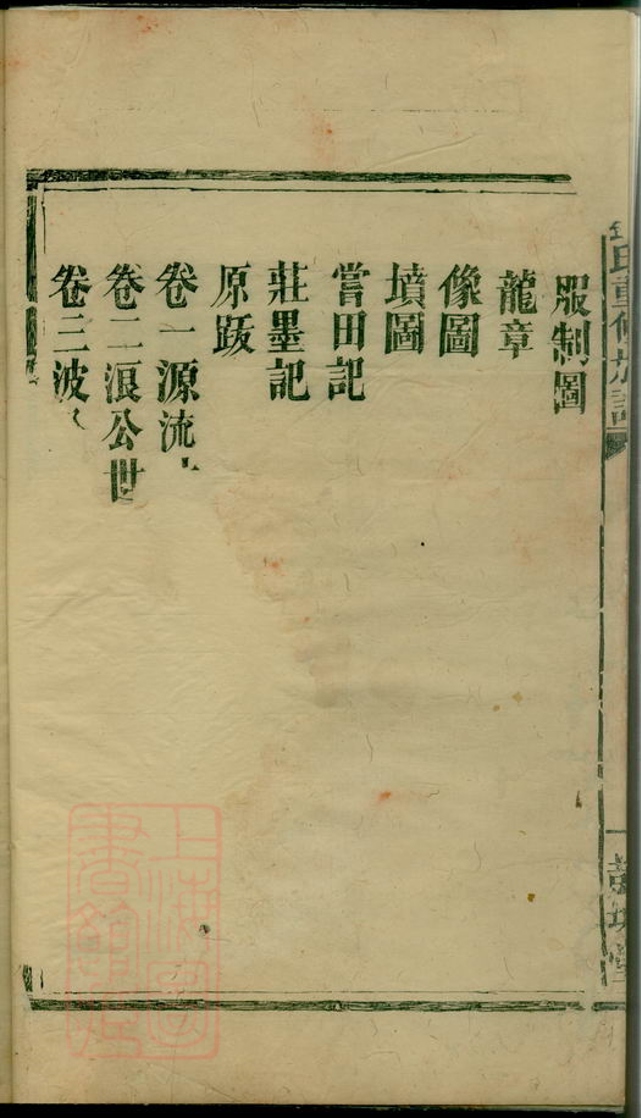 服制圖
龍章
像圖
墳圖
嘗田記
莊墨記
原跋
卷一源流
卷二浪公世
卷三波
氏重修族譜
一
堂
上海圖
書館藏